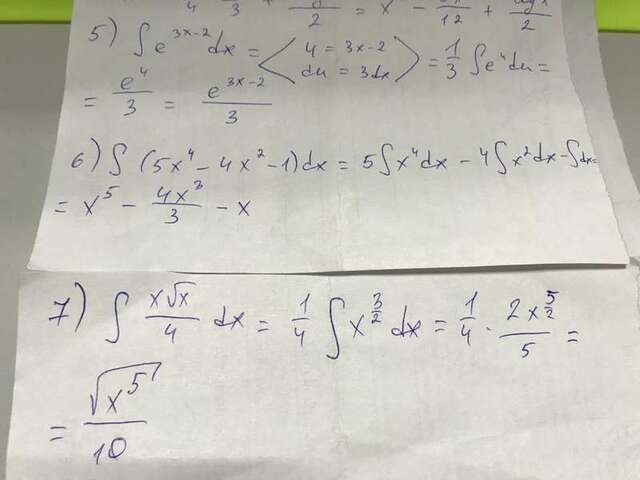 5) ∫ e^{3x-2} dx = < u = 3x-2 du = 3dx > = 1/3 ∫ e^u du =
= e^u/3 = e^{3x-2}/3
6) ∫ (5x^4 - 4x^2 - 1) dx = 5∫x^4 dx - 4∫x^2 dx - ∫dx =
= x^5 - 4x^3/3 - x
7) ∫ x√x/4 dx = 1/4 ∫ x^{3/2} dx = 1/4 · 2x^{5/2}/5 =
= √x^5/10